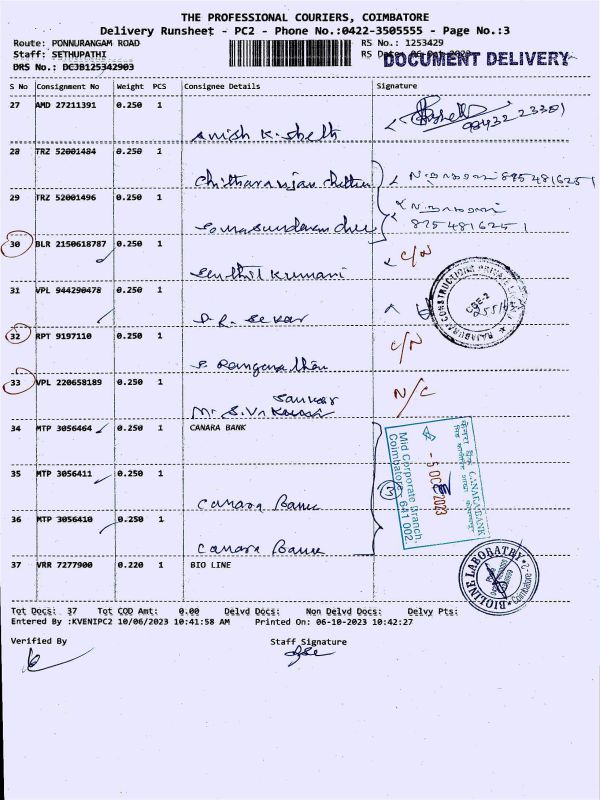 THE PROFESSIONAL COURIERS, COIMBATORE
Delivery Runsheet - PC2 - Phone No.:0422-3505555 - Page No.:3
Route: PONNURANGAM ROAD RS No.: 1253429
Staff: SETHUPATHI RS Date:
DOCUMENT DELIVERY
DRS No.: DCJB125342903
S No Consignment No Weight PCS Consignee Details Signature
27 AMD 27211391 0.250 1
Anish K. Sheth
28 TRZ 52001484 0.250 1
Chittaranjan 8754816251
29 TRZ 52001496 0.250 1
Somasundaram 8754816251
30 BLR 2150618787 0.250 1 C/N
Senthil Kumari
31 VPL 944290478 0.250 1
S.R. Sekar
RAJABURAM CONSTRUCTIONS PRIVATE LIMITED
CBE-2
32 RPT 9197110 0.250 1 C/N
S. Ranganathan
33 VPL 220658189 0.250 1 N/C
Sankar
Mr. S.V.
34 MTP 3056464 0.250 1 CANARA BANK
35 MTP 3056411 0.250 1
Canara Bank
36 MTP 3056410 0.250 1
Canara Bank
CANARA BANK
- 5 OCT 2023
Mid Corporate Branch.
Coimbatore - 641 002.
3
37 VRR 7277900 0.220 1 BIO LINE
BIOLINE LABORATRY
Coimbatore-2
Tot Docs: 37 Tot COD Amt: 0.00 Delvd Docs: Non Delvd Docs: Delvy Pts:
Entered By :KVENIPC2 10/06/2023 10:41:58 AM Printed On: 06-10-2023 10:42:27
Verified By Staff Signature